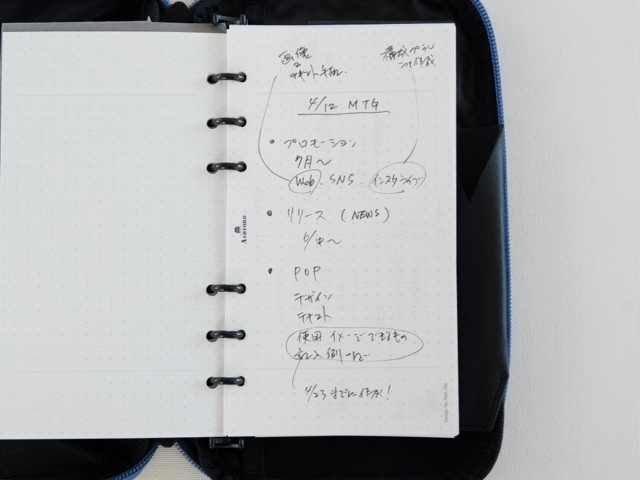 画像
テキスト手配.
構成プラン
作成
4/12 MTG
• プロモーション
7月〜
Web. SNS. インスタライブ
• リリース (NEWS)
5/中〜
• POP
デザイン
テキスト
使用イメージできるもの
記入例
4/23までに作成!
ASHFORD